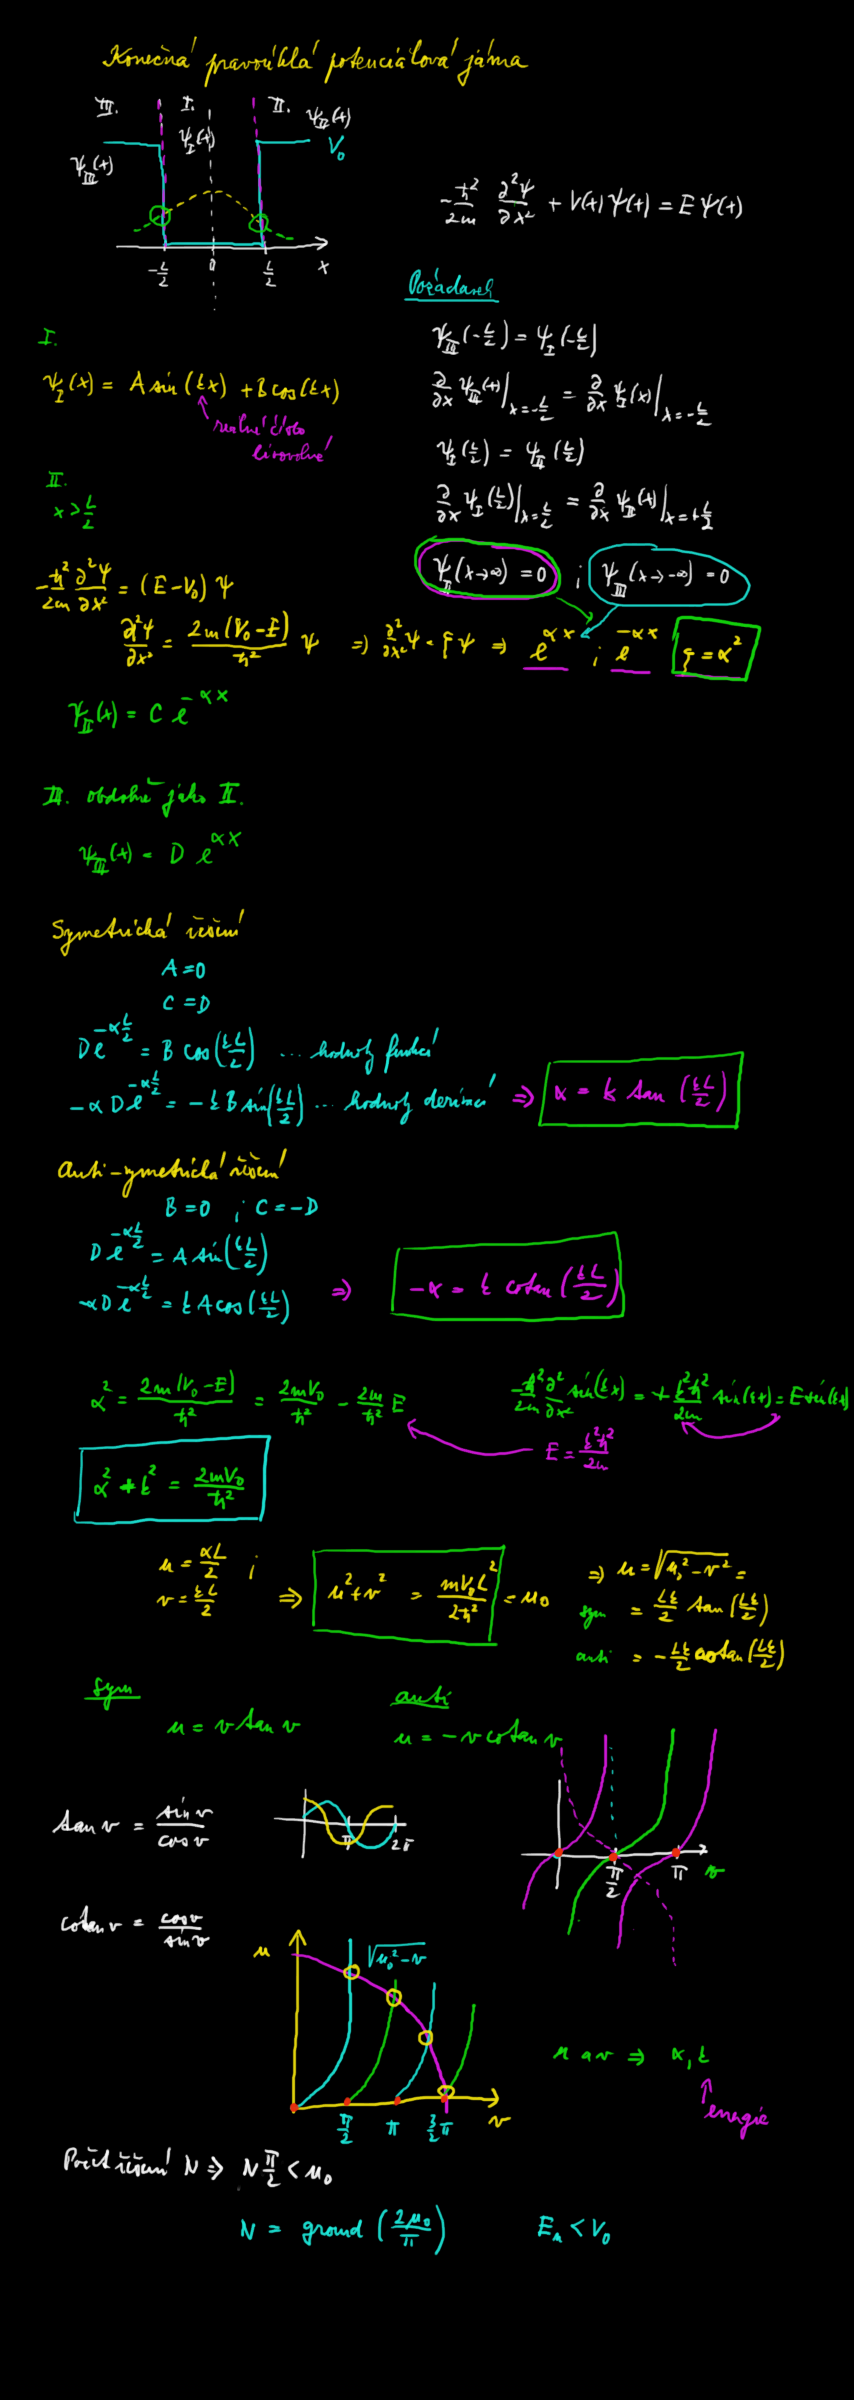 Konečná pravoúhlá potenciálová jáma
III. I. II. ψ_II(x)
ψ_I(x) V₀
ψ_III(x)
-L/2 0 L/2 x
-ħ²/2m ∂²ψ/∂x² + V(x)ψ(x) = Eψ(x)
Požadavek
ψ_III(-L/2) = ψ_I(-L/2)
∂/∂x ψ_III(x)|x=-L/2 = ∂/∂x ψ_I(x)|x=-L/2
ψ_I(L/2) = ψ_II(L/2)
∂/∂x ψ_I(L/2)|x=L/2 = ∂/∂x ψ_II(x)|x=+L/2
ψ_II(x→∞) = 0 ; ψ_III(x→-∞) = 0
I.
ψ_I(x) = A sin(kx) + B cos(kx)
reálné číslo
libovolné
II.
x > L/2
-ħ²/2m ∂²ψ/∂x² = (E-V₀) ψ
∂²ψ/∂x² = 2m(V₀-E)/ħ² ψ ⇒ ∂²/∂x² ψ = ξψ ⇒ e^αx ; e^-αx ξ = α²
ψ_II(x) = C e^-αx
III. obdobně jako II.
ψ_III(x) = D e^αx
Symetrická řešení
A = 0
C = D
De^-αL/2 = B cos(kL/2) ... hodnoty funkcí
-αDe^-αL/2 = -kB sin(kL/2) ... hodnoty derivací ⇒ α = k tan(kL/2)
Anti-symetrická řešení
B = 0 ; C = -D
De^-αL/2 = A sin(kL/2)
-αDe^-αL/2 = kA cos(kL/2) ⇒ -α = k cotan(kL/2)
α² = 2m(V₀-E)/ħ² = 2mV₀/ħ² - 2m/ħ² E
-ħ²/2m ∂²/∂x² sin(kx) = +k²ħ²/2m sin(kx) = E sin(kx)
E = k²ħ²/2m
α² + k² = 2mV₀/ħ²
u = αL/2 ;
v = kL/2 ⇒ u² + v² = mV₀L²/2ħ² = u₀
⇒ u = √(u₀² - v²) =
sym = Lk/2 tan(Lk/2)
anti = -Lk/2 cotan(Lk/2)
sym
u = v tan v
anti
u = -v cotan v
tan v = sin v/cos v
π 2π
π/2 π v
cotan v = cos v/sin v
u √(u₀² - v)
π/2 π 3/2 π v
u a v ⇒ α, k
energie
Počet řešení N ⇒ N π/2 < u₀
N = ground(2u₀/π) Eₙ < V₀